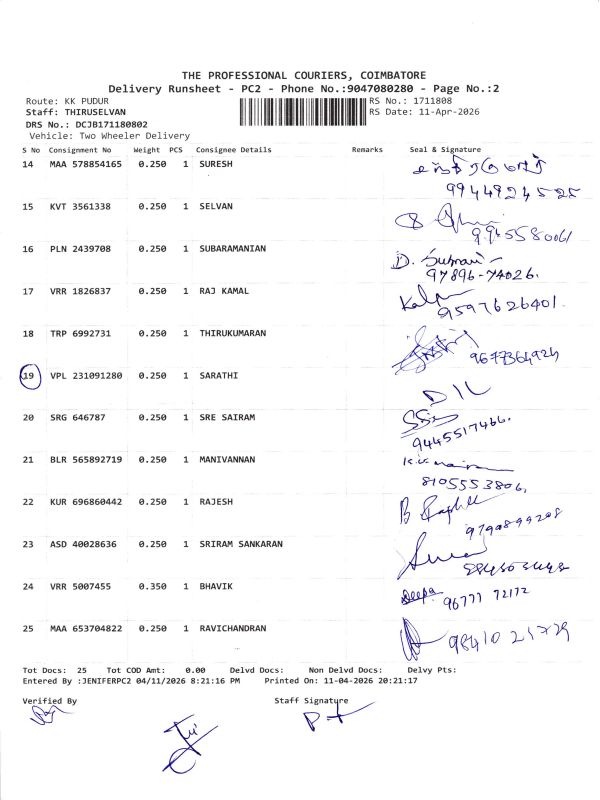 THE PROFESSIONAL COURIERS, COIMBATORE
Delivery Runsheet - PC2 - Phone No.:9047080280 - Page No.:2
Route: KK PUDUR
RS No.: 1711808
Staff: THIRUSELVAN
RS Date: 11-Apr-2026
DRS No.: DCJB171180802
Vehicle: Two Wheeler Delivery
S No Consignment No Weight PCS Consignee Details Remarks Seal & Signature
14 MAA 578854165 0.250 1 SURESH
15 KVT 3561338 0.250 1 SELVAN
16 PLN 2439708 0.250 1 SUBARAMANIAN D.
97896-74026.
17 VRR 1826837 0.250 1 RAJ KAMAL
9597626401.
18 TRP 6992731 0.250 1 THIRUKUMARAN
9677364924
19 VPL 231091280 0.250 1 SARATHI D/L
20 SRG 646787 0.250 1 SRE SAIRAM
9445517466.
21 BLR 565892719 0.250 1 MANIVANNAN
8105553806.
22 KUR 696860442 0.250 1 RAJESH B
9790899208
23 ASD 40028636 0.250 1 SRIRAM SANKARAN
24 VRR 5007455 0.350 1 BHAVIK Deepa 96777 72172
25 MAA 653704822 0.250 1 RAVICHANDRAN 98410 21729
Tot Docs: 25 Tot COD Amt: 0.00 Delvd Docs: Non Delvd Docs: Delvy Pts:
Entered By :JENIFERPC2 04/11/2026 8:21:16 PM Printed On: 11-04-2026 20:21:17
Verified By
Staff Signature